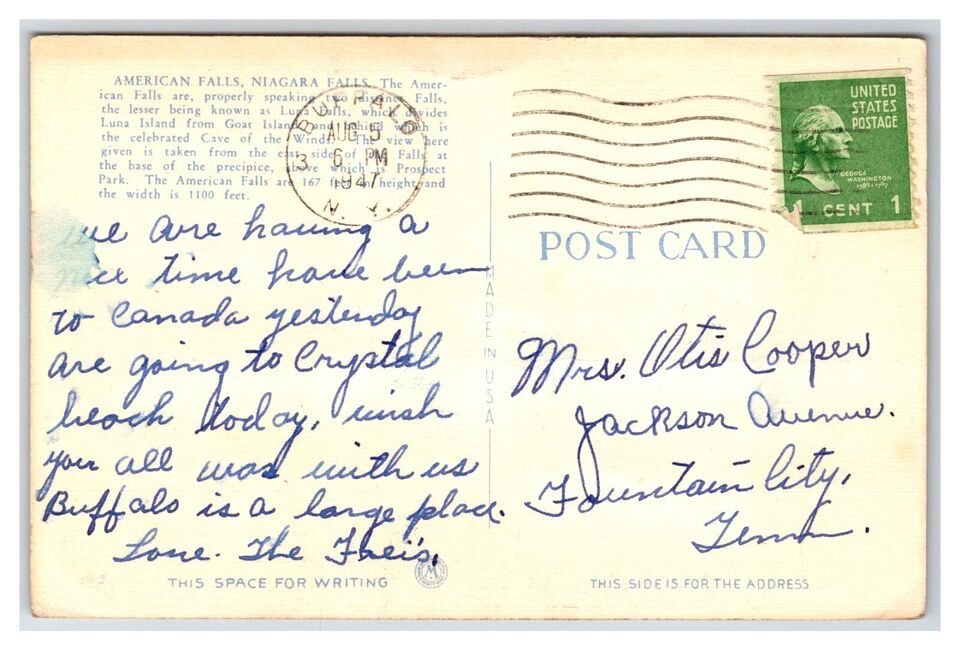 AMERICAN FALLS, NIAGARA FALLS. The Amer-
ican Falls are, properly speaking two distinct Falls,
the lesser being known as Luna Falls, which divides
Luna Island from Goat Island and behind which is
the celebrated Cave of the Winds. The view here
given is taken from the east side of the Falls at
the base of the precipice, above which is Prospect
Park. The American Falls are 167 feet in height and
the width is 1100 feet.
BUFFALO
AUG 5
6 PM
1947
N. Y.
3
UNITED
STATES
POSTAGE
GEORGE
WASHINGTON
1789-1797
1 CENT 1
POST CARD
we are having a
nice time have been
to Canada yesterday
are going to Crystal
beach today, wish
you all was with us
Buffalo is a large place.
Love. The Frei's.
MADE IN USA
Mrs. Otis Cooper
Jackson Avenue.
Fountain City,
Tenn.
THIS SPACE FOR WRITING
M
THIS SIDE IS FOR THE ADDRESS